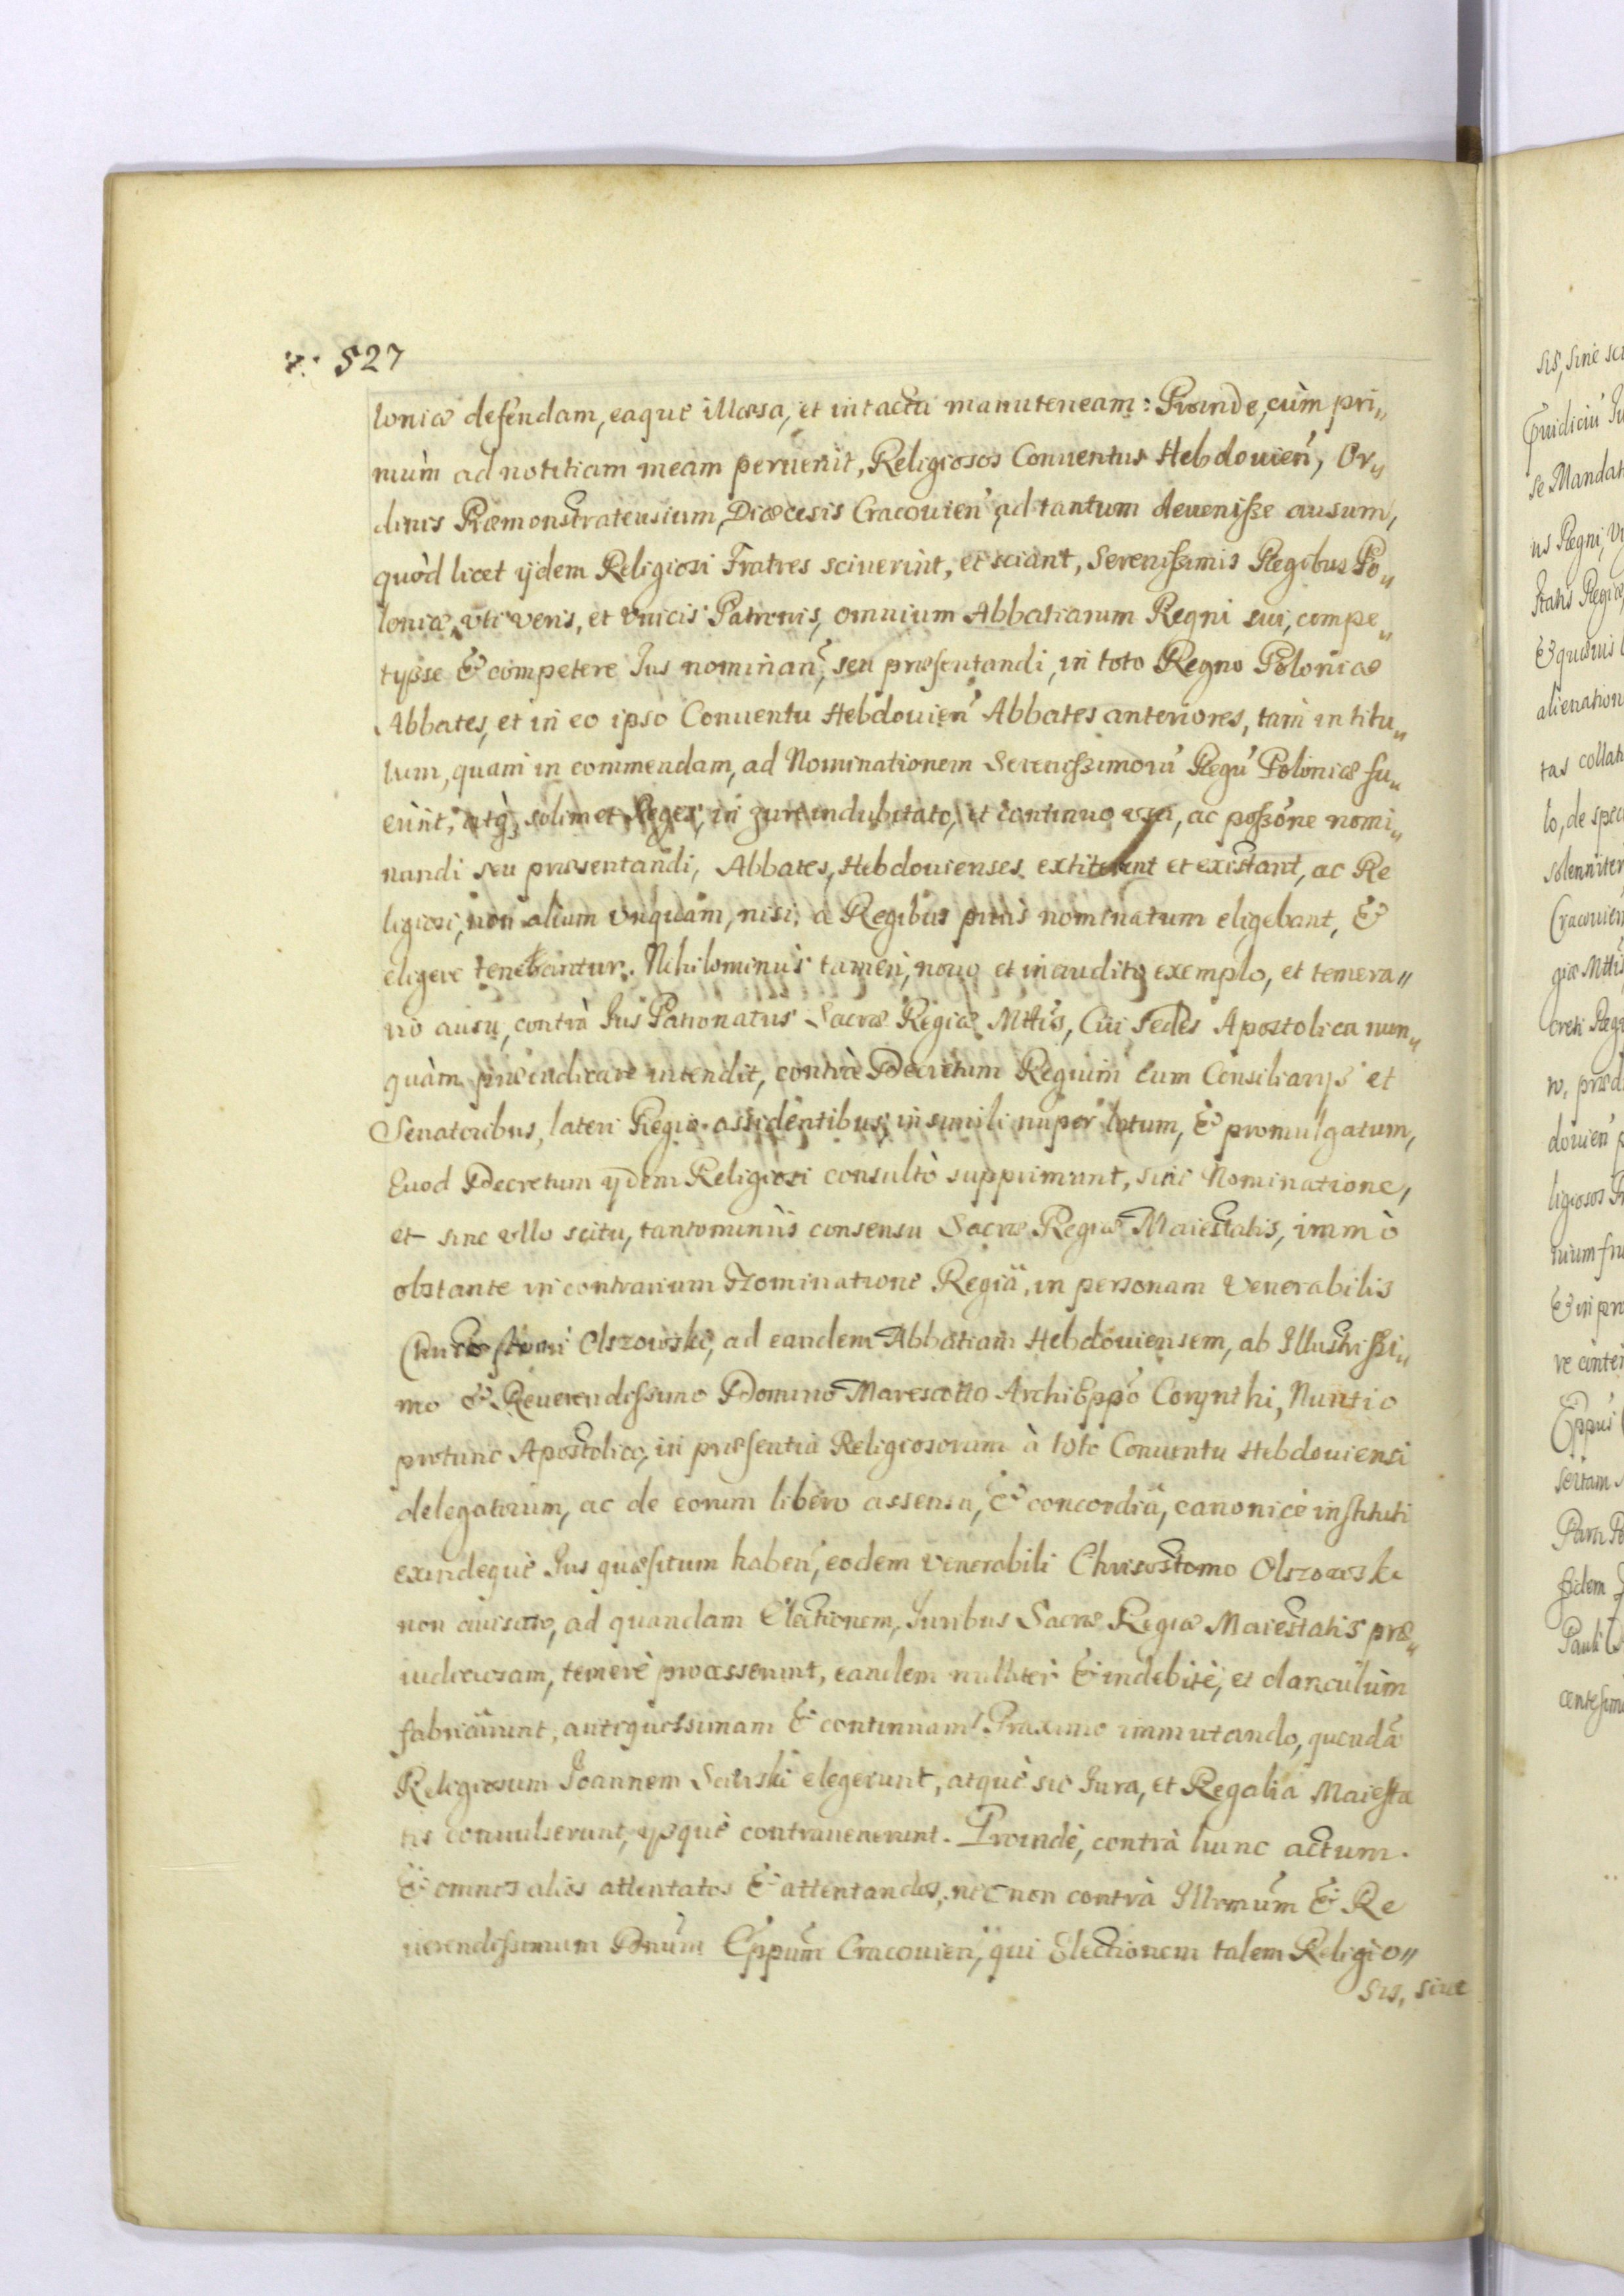 v. 527
loniæ defendam, eaque illæsa, et intacta manuteneam: Proinde, cùm pri„
mùm ad notitiam meam peruenit, Religiosos Conuentus Hebdouień, Or„
dinis Præmonstratensium, Diœcesis Cracouień ad tantum deuenisse ausum,
quòd licet ijdem Religiosi Fratres sciuerint, et sciant, Serenissimis Regibus Po„
loniæ, vti veris, et vnicis Patronis, omnium Abbatiarum Regni sui, compe„
tysse & competere Jus nominań, seu præsentandi, in toto Regno Poloniæ
Abbates, et in eo ipso Conuentu Hebdouień Abbates anteriores, tam in titu„
lum, quam in commendam, ad Nominationem Serenissimorũ Regũ Poloniæ fu„
erint, atq; solimet Reges, in jure indubitato, et continuo usu, ac possőne nomi„
nandi seu præsentandi, Abbates, Hebdouienses extiterint et existant, ac Re
ligiosi, non alium vnquam, nisi, a Regibus prius nominatum eligebant, &
eligere tenebantur. Nihilominus tamen, nouo et inaudito exemplo, et temera„
rio ausu, contrà Jus Patronatus Sacræ Regiæ Mttis, Cui Sedes Apostolica nun„
quàm præiudicare intendit, contrà Decretum Regium cum Consiliarys et
Senatoribus, lateri Regio assidentibus, in simili nuper latum, & promulgatum,
Quod Decretum ydem Religiosi consultò supprimunt, sine Nominatione,
et sine vllo scitu, tantominùs consensu Sacræ Regiæ Maiestatis, immò
obstante in contrarium Nominatione Regiâ, in personam Venerabilis
Olszowski, ad eandem Abbatiam Hebdouiensem, ab Illustrissi„
mo & Reuerendissimo Domino Marescotto ArchiEppő Corynthi, Nuntio
protunc Apostolico, in præsentia Religiosorum à toto Conuentu Hebdouiensi
delegatorum, ac de eorum libero assensu, & concordiâ, canonicè instituti
exindequè Jus quæsitum habeń, eodem Venerabili Chrisostomo Olszowski
non auisato, ad quandam Electionem, Juribus Sacræ Regiæ Maiestatis præ„
iudiciosam, temerè processerunt, eandem nulliter & indebitè, et clanculùm
fabricârunt, antiquissimam & continuam Praxim immutando, quendã
Religiosum Joannem elegerunt, atquè sic Jura, et Regalia Maiesta
tis conuulserunt, ysquè contrauenerunt. Proindè, contrà hunc actum.
& omnes alios attentatos & attentandos, nec non contrà Illrmum & Re
uerendissimum Dnũm Eppũm Cracouień, qui Electionem talem Religio„
sis, sine